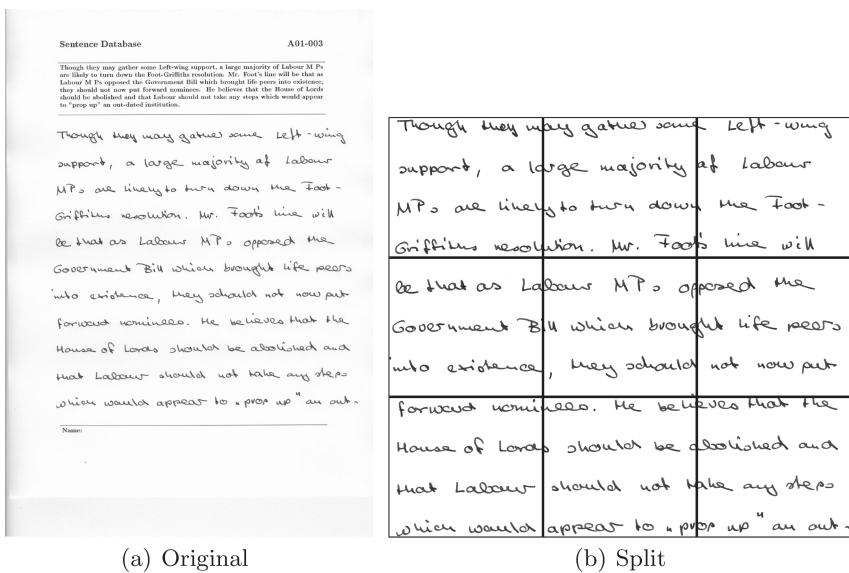 Sentence Database A01-003
Though they may gather some Left-wing support, a large majority of Labour M Ps
are likely to turn down the Foot-Griffiths resolution. Mr. Foot's line will be that as
Labour M Ps opposed the Government Bill which brought life peers into existence,
they should not now put forward nominees. He believes that the House of Lords
should be abolished and that Labour should not take any steps which would appear
to "prop up" an out-dated institution.
Though they may gather some Left-wing
support, a large majority of Labour
MPs are likely to turn down the Foot-
Griffiths resolution. Mr. Foot's line will
be that as Labour MPs opposed the
Government Bill which brought life peers
into existence, they should not now put
forward nominees. He believes that the
House of Lords should be abolished and
that Labour should not take any steps
which would appear to „prop up" an out-
Name:
(a) Original
Though they may gather some Left-wing
support, a large majority of Labour
MPs are likely to turn down the Foot-
Griffiths resolution. Mr. Foot's line will
be that as Labour MPs opposed the
Government Bill which brought life peers
into existence, they should not now put
forward nominees. He believes that the
House of Lords should be abolished and
that Labour should not take any steps
which would appear to „prop up" an out-
(b) Split